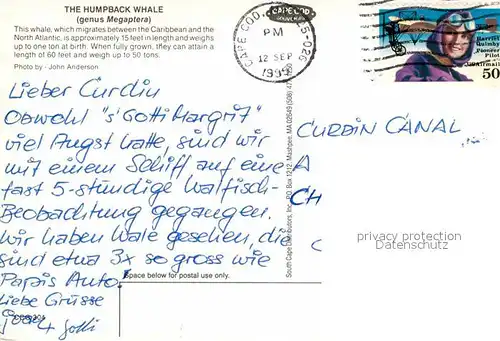 THE HUMPBACK WHALE
(genus Megaptera)
This whale, which migrates between the Caribbean and the
North Atlantic, is approximately 15 feet in length and weighs
up to one ton at birth. When fully grown, they can attain a
length of 60 feet and weigh up to 50 tons.
Photo by - John Anderson
CAPE COD
PM
12 SEP
Harriet
Quimby
Pioneer
Pilot
USAirmail
50
Lieber Curdin
Obwohl "s' Gotti Margrit"
viel Angst hatte, sind wir
mit einem Schiff auf eine
fast 5-stündige Walfisch-
Beobachtung gegangen.
Wir haben Wale gesehen, die
sind etwa 3x so gross wie
Papis Auto!
Liebe Grüsse
Gotti
South Cape Distributors, Inc. P.O. Box 1212, Mashpee, MA 02649 (508) 47
CURDIN CANAL
A
CH
C
privacy protection
Datenschutz
Space below for postal use only.